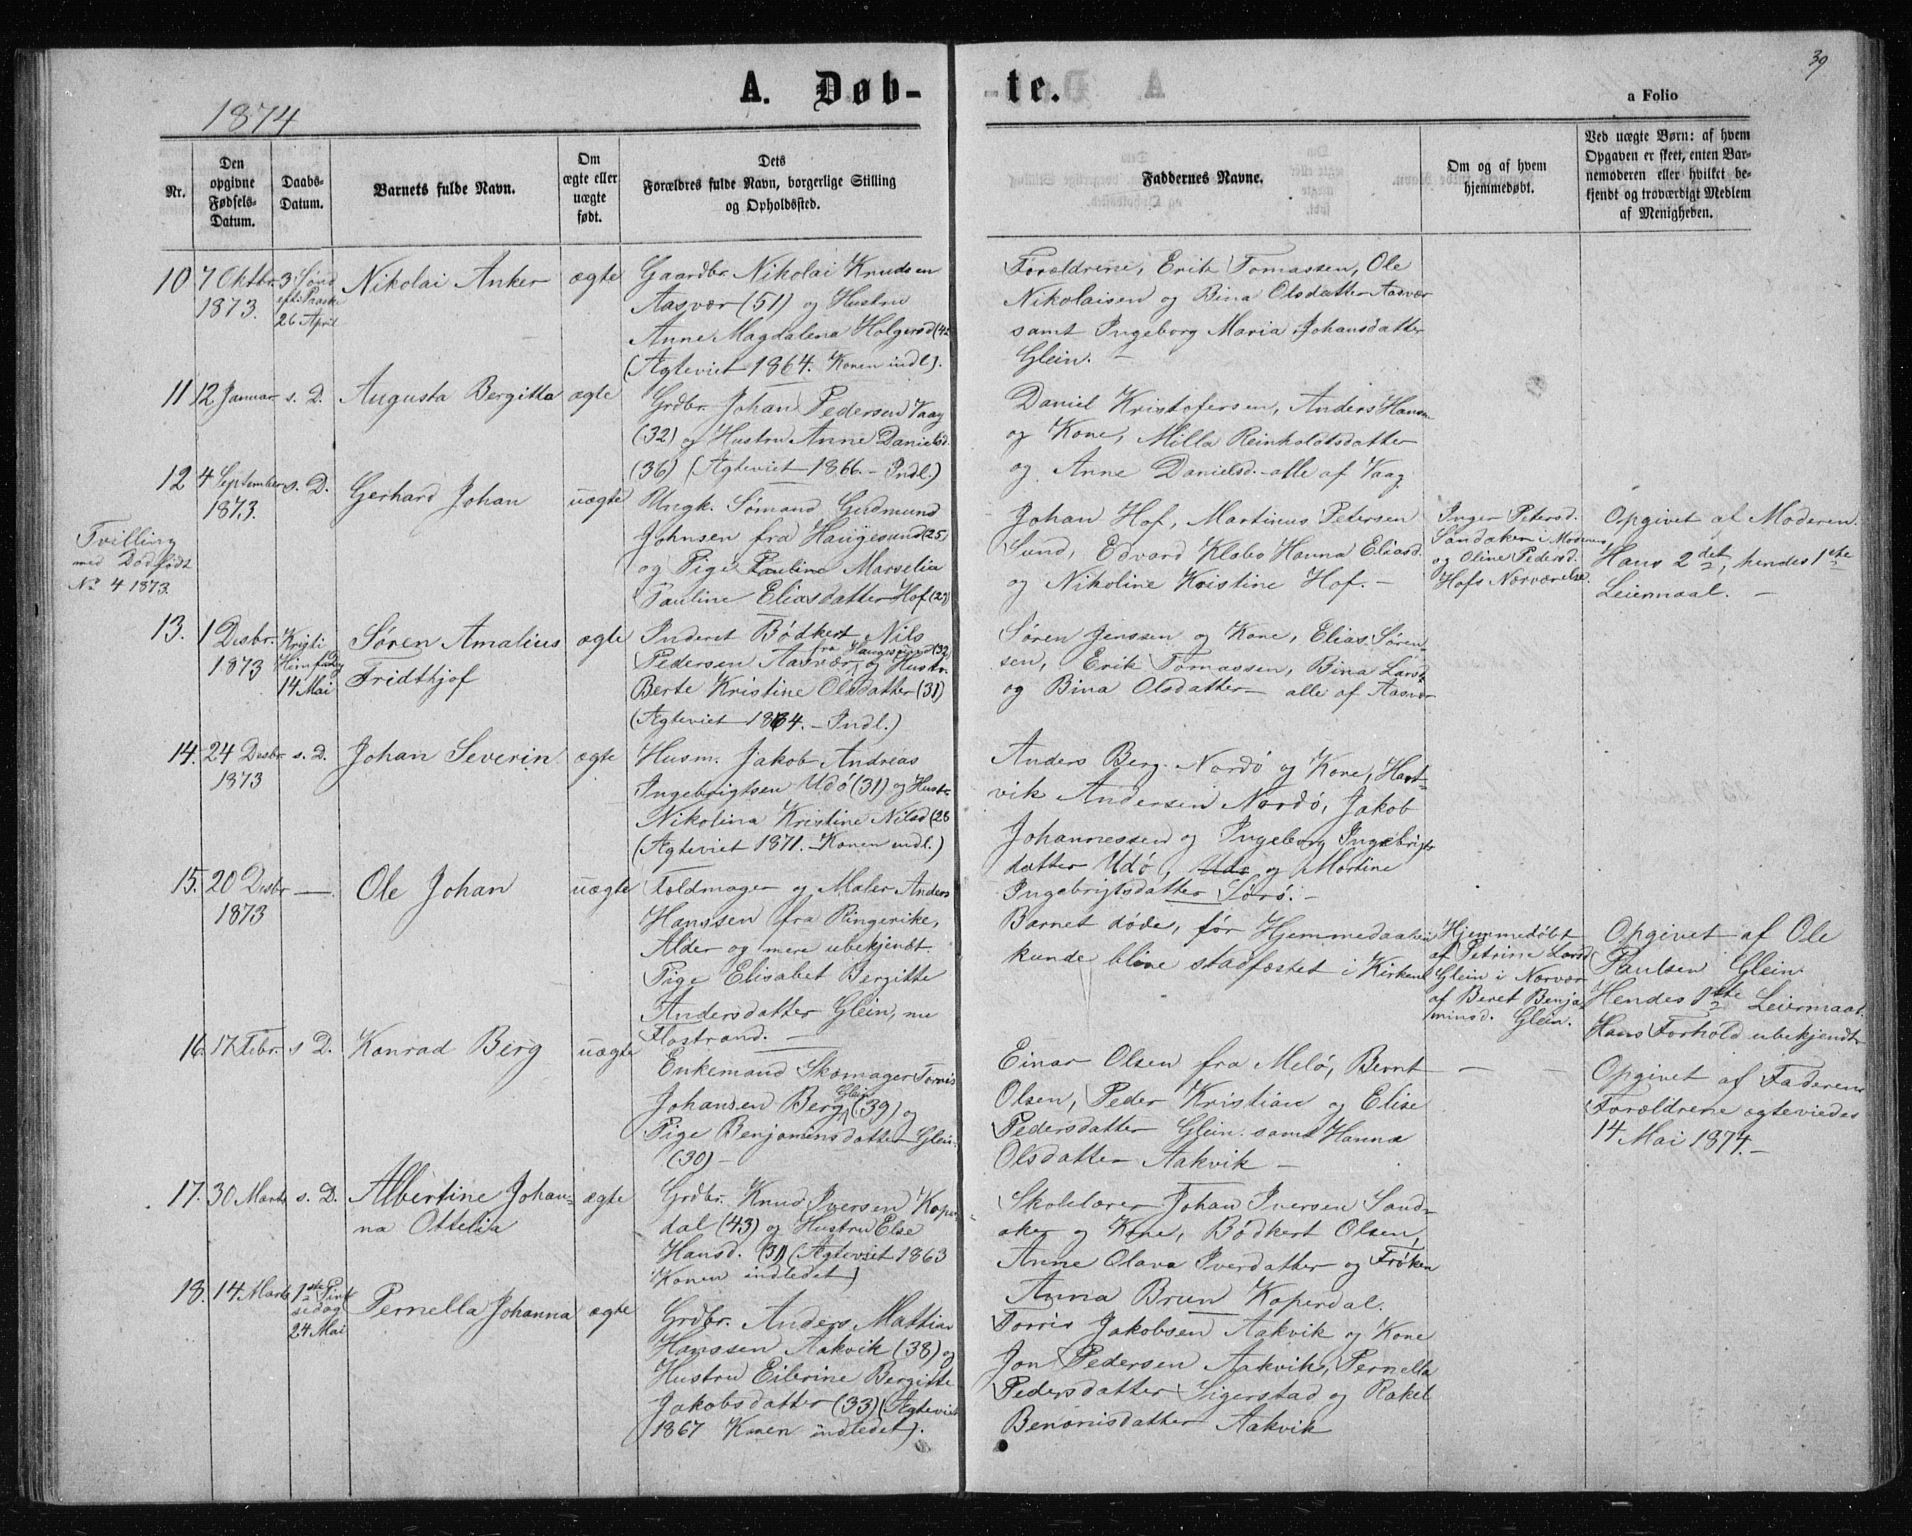 39
A. Døb-te.
a Folio
1874
Nr.
Den opgivne Fødsels-Datum.
Daabs-Datum.
Barnets fulde Navn.
Om ægte eller uægte født.
Dets Forældres fulde Navn, borgerlige Stilling og Opholdssted.
Faddernes Navne.
Om og af hvem hjemmedøbt.
Ved uægte Børn: af hvem Opgaven er skeet, enten Barnemoderen eller hvilket bekjendt og troværdigt Medlem af Menigheden.
10
7 Oktbr.
1873.
3 Sønd
eft. Paaske
26 April
Nikolai Anker
ægte
Gaardbr. Nikolai Knudsen
Aasvær (51) og Hustru
Anne Magdalena Holgersd (42
(Ægteviet 1864. Konen indl).
Forældrene, Erik Tomassen, Ole
Nikolaisen og Bina Olsdatter Aasvær
samt Ingeborg Maria Johansdatter
Glein. —
11
12 Januar
s. D.
Augusta Bergitta
ægte
Grdbr. Johan Pedersen Vaag
(32) og Hustru Anne Danielsd.
(36) (Ægteviet 1866. – Indl.)
Daniel Kristofersen, Anders Hansen
og Kone, Milla Reinholdtsdatter
og Anne Danielsd. alle af Vaag
12
4 September
1873.
s. D.
Gerhard Johan
uægte
Tvilling
med Dødfødt
No 4 1873.
Ungk. Sømand Gudmund
Johnsen fra Haugesund (25)
og Pige Pauline Marselia
Pauline Eliasdatter Hof (27)
Johan Hof, Martinus Petersen
Sund, Edvard Klabo Hanna Eliasd.
og Nikoline Kristine Hof. –
Inger Petersd.
Sandaker i Moderens
og Oline Pedersd.
Hofs Nærværelse.
Opgivet af Moderen.
Hans 2det, hendes 1ste
Leiermaal. –
13.
1 Desbr.
1873
Kristi
Himfartsdag
14 Mai
Søren Amalius
Fridthjof
ægte
Inderst Bødkert Nils
fra Haugesund (32)
Pedersen Aasvær, og Hustr.
Berte Kristine Olsdatter (31)
(Ægteviet 1864. – Indl.)
Søren Jenssen og Kone, Elias Søren-
sen, Erik Tomassen, Bina Larsd.
og Bina Olsdatter – alle af Aasvær
14.
24 Desbr
1873
s. D.
Johan Severin
ægte
Husm. Jakob Andreas
Ingebrigtsen Udø (31) og Hustr.
Nikolina Kristine Nilsd (26
(Ægteviet 1871. – Konen indl.)
Anders Berg Nordø og Kone, Hart-
vik Andersen Nordø, Jakob
Johannessen og Ingeborg Ingebrigts
datter Udø, Udø og Martine
Ingebrigtsdatter Sørø. –
15.
20 Desbr
1873
—
Ole Johan
uægte
Foldmager og Maler Anders
Hanssen fra Ringerike,
Alder og mere ubekjendt.
Pige Elisabet Bergitte
Andersdatter Glein, nu
Flostrand. –
Barnet døde, før Hjemmedaaben
kunde blive stadfæstet i Kirken
Hjemmedøbt
af Petrine Larsd
Glein i Nærvær
af Beret Benja-
minsd. Glein.
Opgivet af Ole
Paulsen Glein.
Hendes 1ste Leiermaal.
Hans Forhold ubekjendt
16.
17 Febr.
s. D.
Konrad Berg
uægte
Enkemand Skomager Torris
Johansen Berg Glein (39) og
Pige Benjaminsdatter Glein.
(30) –
Einar Olsen fra Melø, Bernt
Olsen, Peder Kristian og Elise
Pedersdatter Glein. samt Hanna
Olsdatter Aakvik –
—
—
Opgivet af Faderen
Forældrene ægteviedes
14 Mai 1874. –
17.
30 Marts
s. D.
Albertine Johan-
na Ottelia
ægte
Grdbr. Knud Iversen Koper
dal (43) og Hustru Else
Hansd. (31) (Ægteviet 1863
Konen indledet)
Skolelærer Johan Iversen Sand-
aker og Kone, Bødkert Olsen,
Anne Olava Iverdatter og Frøken
Anna Brun Koperdal.
18.
14 Marts
1ste Pint
sedag
24 Mai
Pernella Johanna
ægte
Grdbr. Anders Mattias
Hanssen Aakvik (38) og
Hustru Eilerine Bergitte
Jakobsdatter (33) (Ægteviet
1867 Konen indledet).
Torris Jakobsen Aakvik og Kone
Jon Pedersen Aakvik, Pernella
Pedersdatter Sigerstad og Rakel
Benonisdatter Aakvik